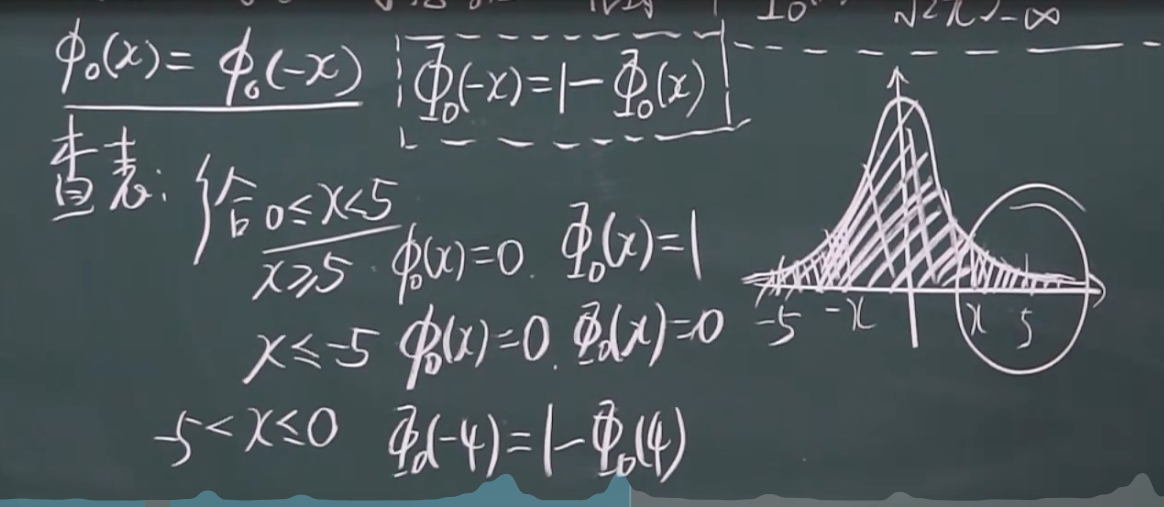 φ₀(x) = φ₀(-x)
Φ₀(-x) = 1 - Φ₀(x)
查表: 给 0 ≤ x < 5
x ≥ 5. φ₀(x) = 0. Φ₀(x) = 1
x ≤ -5 φ₀(x) = 0. Φ₀(x) = 0
-5 < x ≤ 0 Φ₀(-4) = 1 - Φ₀(4)
-5 -x x 5